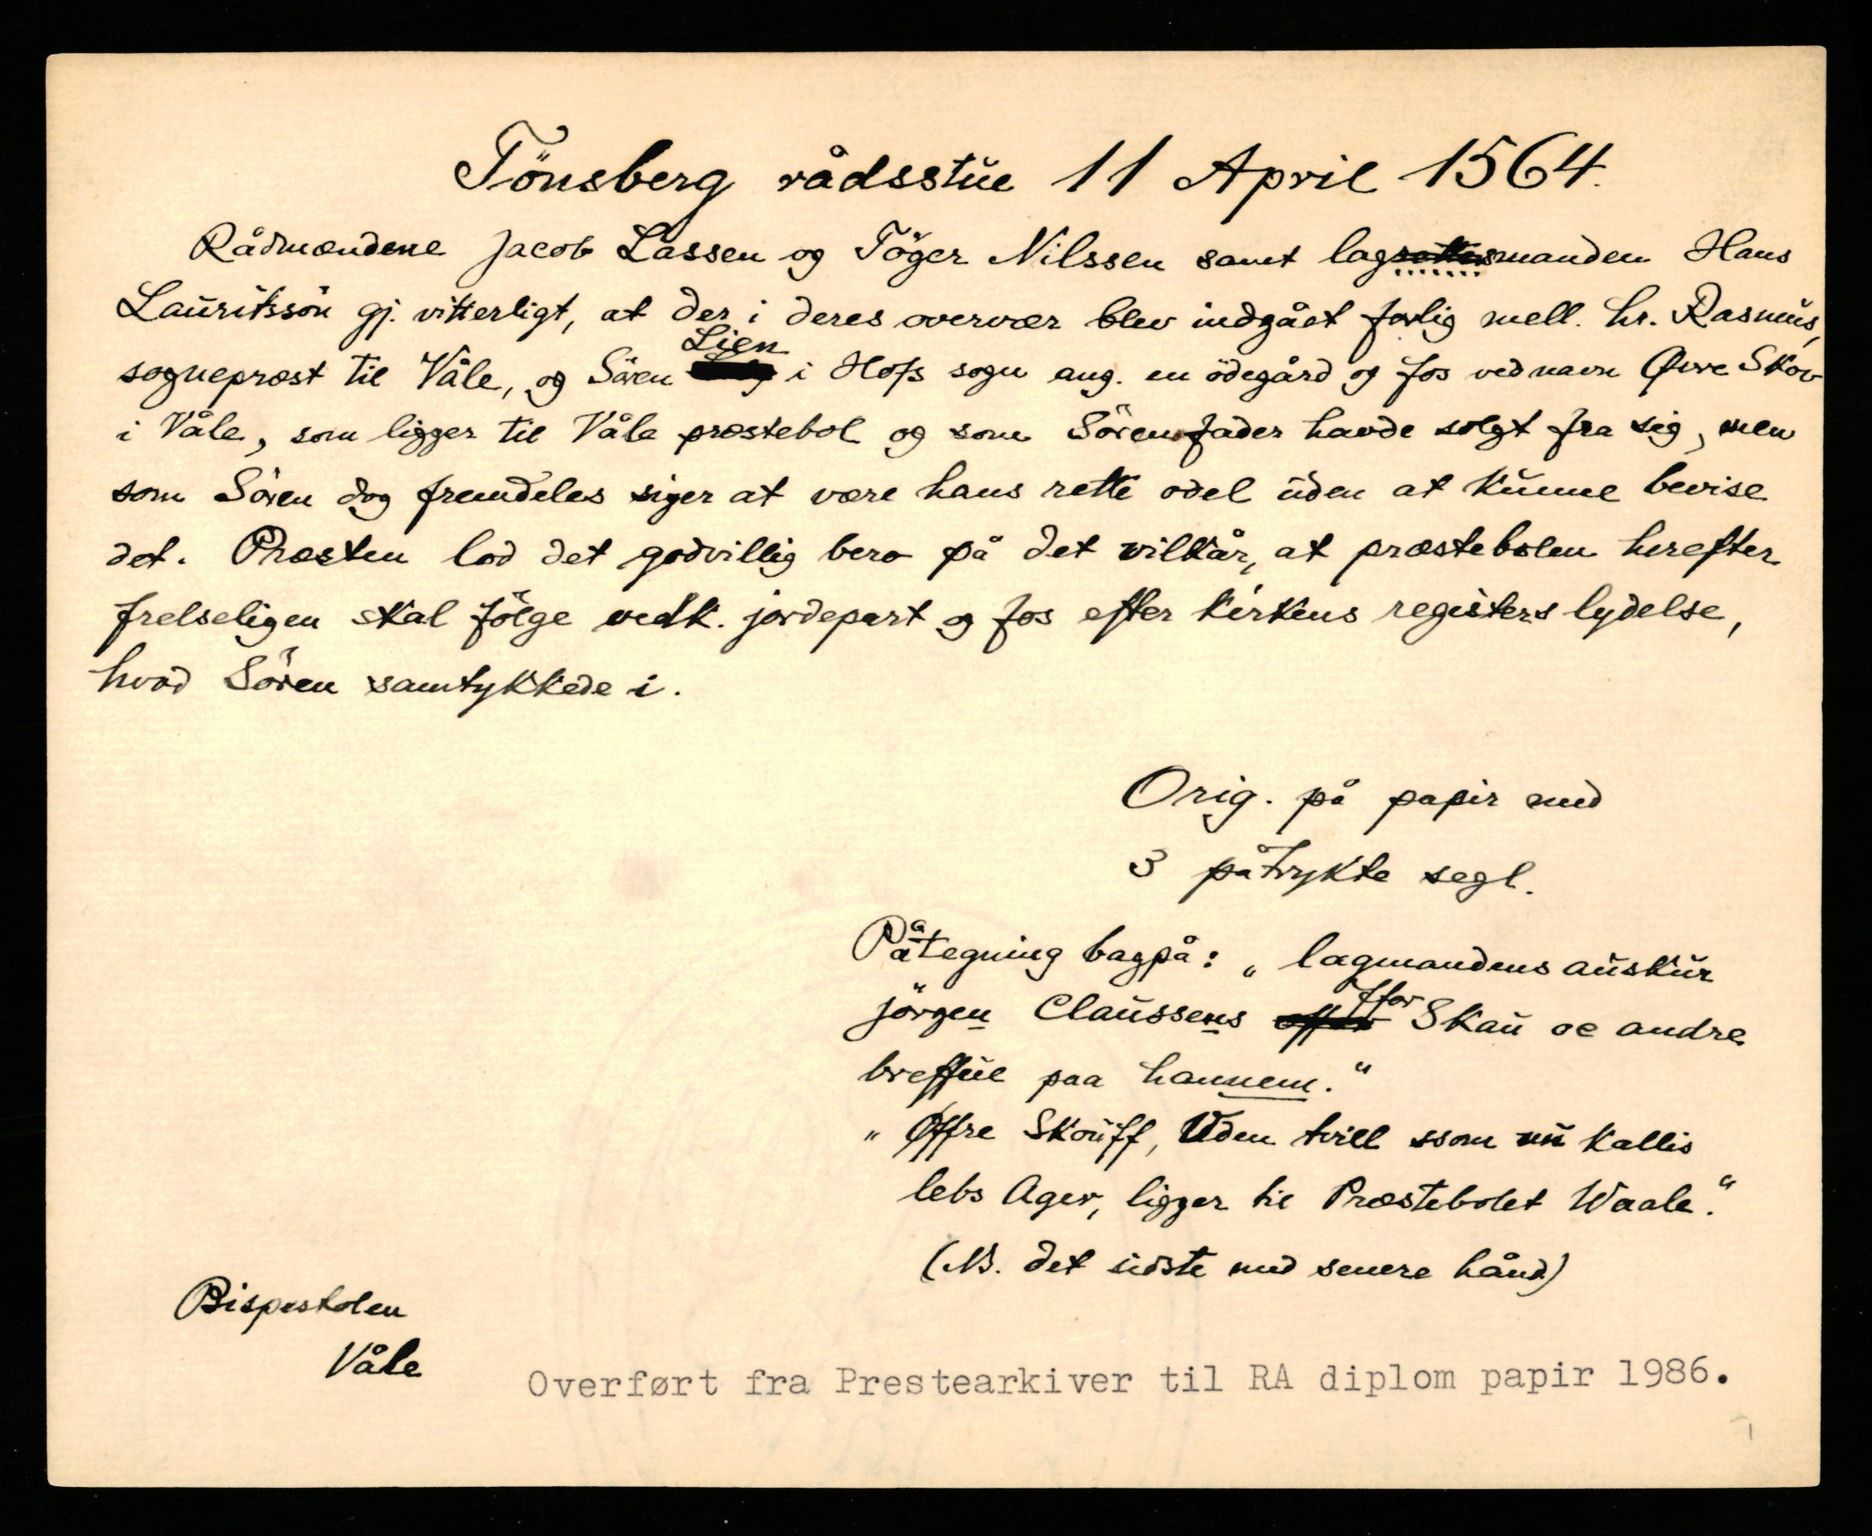 Tönsberg rådsstue 11 April 1564.
Rådmændene Jacob Lassen og Töger Nilssen samt lagrettesmanden Hans
Lauritssön gj. vitterligt, at der i deres overvær blev indgået forlig mell. hr. Rasmus,
sognepræst til Våle, og Sören Lien i Hofs sogn ang. en ödegård og fos ved navn Øvre Skov
i Våle, som ligger til Våle præstebol og som Sörens fader havde solgt fra sig, men
som Sören dog fremdeles siger at være hans rette odel uden at kunne bevise
det. Præsten lod det godvillig bero på det vilkår, at præstebolen herefter
frelseligen skal fölge vedk. jordepart og fos efter kirkens registers lydelse,
hvad Sören samtykkede i.
Orig. på papir med
3 påtrykte segl.
Påtegning bagpå: „lagmandens auskur
jörgen Claussens ffor Skau oc andre
breffue paa hannem.“
„Øffre Skouff, Uden tvill ssom nu kallis
lebs Ager, ligger til Præstebolet Waale.“
(NB. det sidste med senere hånd)
Bispestolen
Våle
Overført fra Prestearkiver til RA diplom papir 1986.